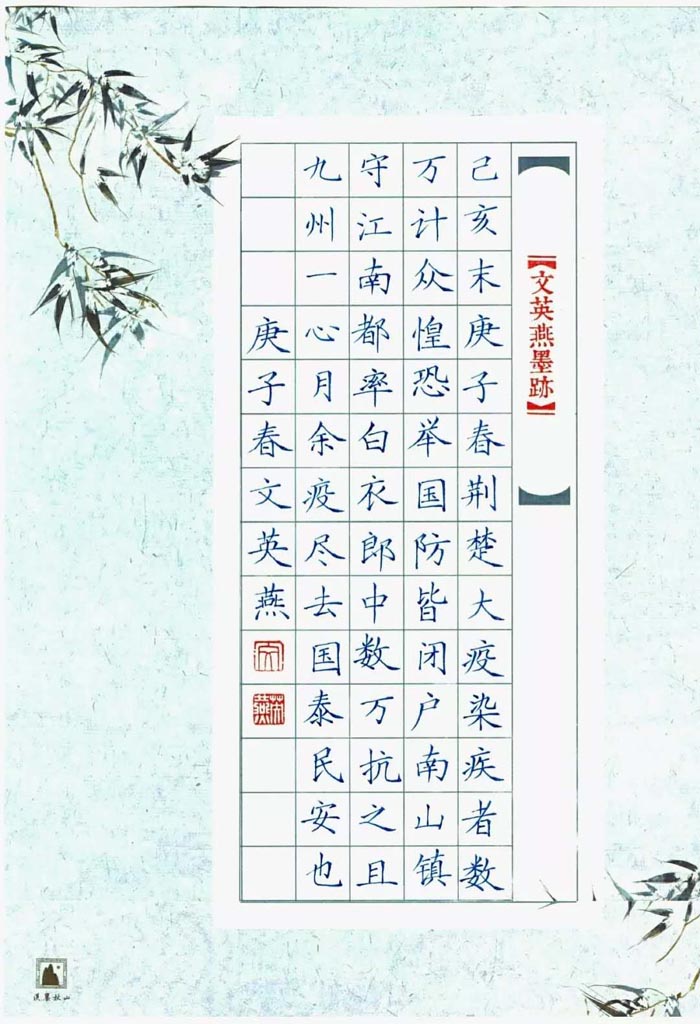 【文英燕墨跡】
己亥末庚子春荆楚大疫染疾者数
万计众惶恐举国防皆闭户南山镇
守江南都率白衣郎中数万抗之且
九州一心月余疫尽去国泰民安也
庚子春文英燕
文
英燕